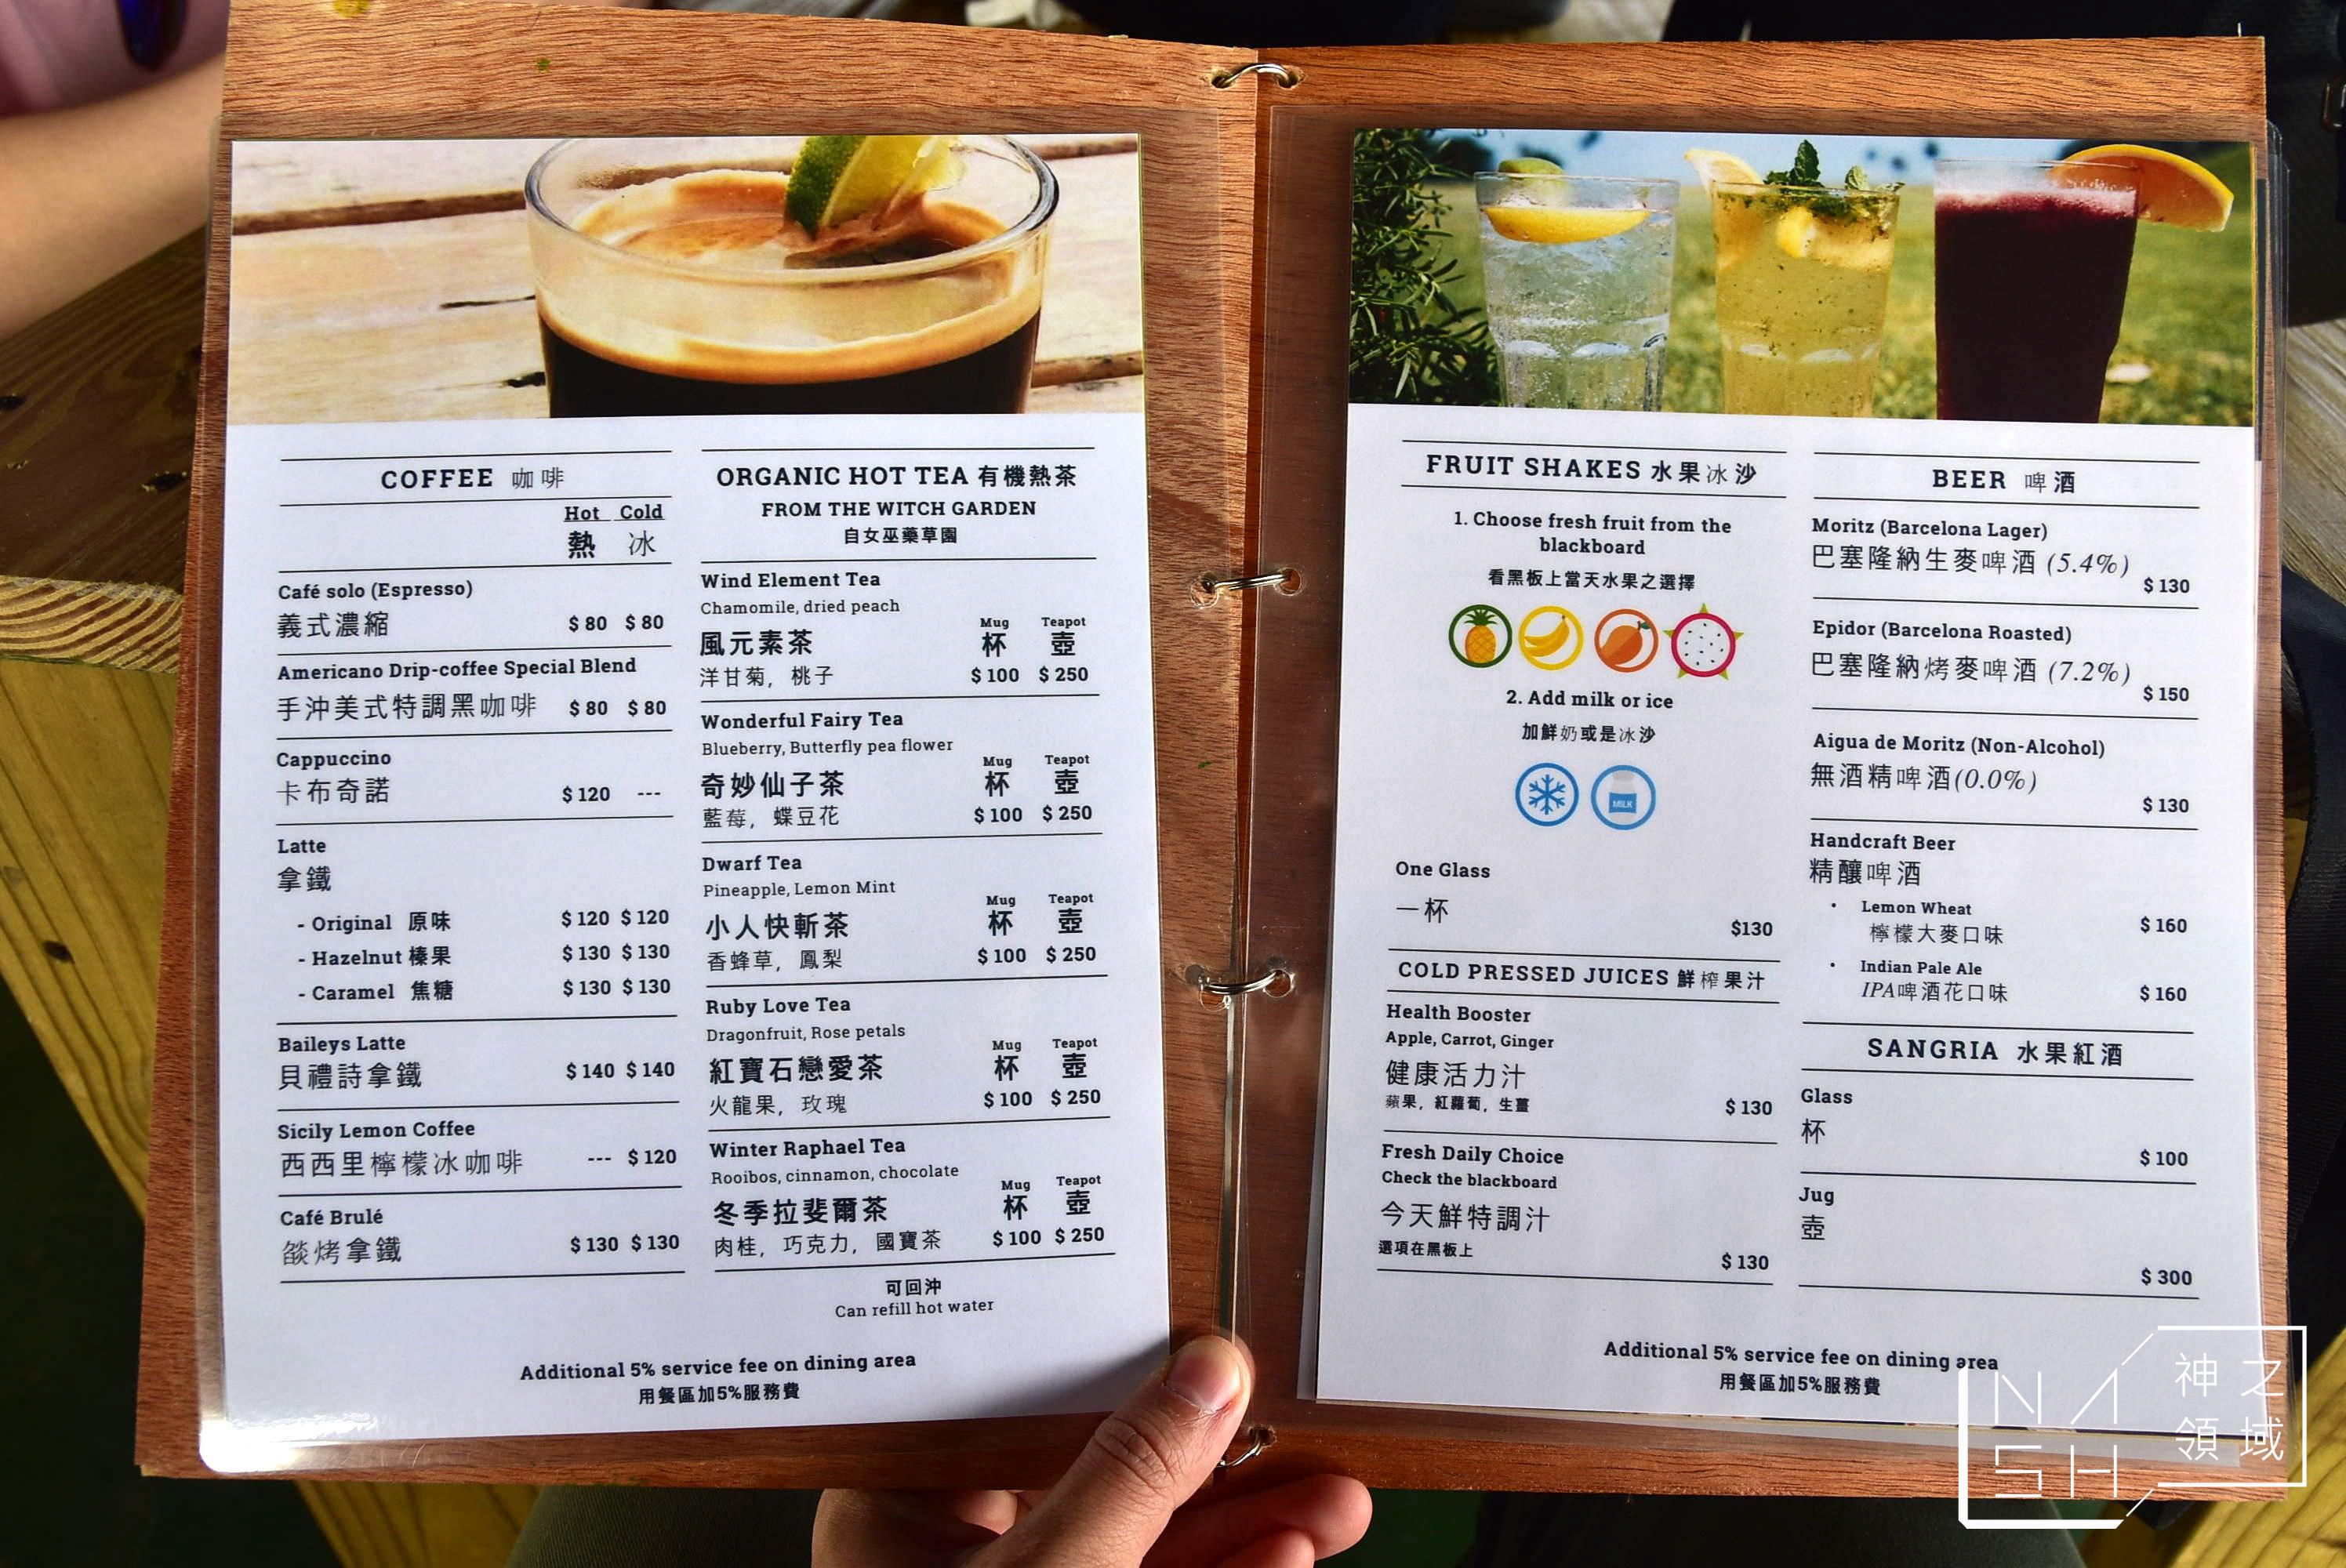 COFFEE 咖啡
Hot Cold
熱 冰
Café solo (Espresso)
義式濃縮 $ 80 $ 80
Americano Drip-coffee Special Blend
手沖美式特調黑咖啡 $ 80 $ 80
Cappuccino
卡布奇諾 $ 120 ---
Latte
拿鐵
- Original 原味 $ 120 $ 120
- Hazelnut 榛果 $ 130 $ 130
- Caramel 焦糖 $ 130 $ 130
Baileys Latte
貝禮詩拿鐵 $ 140 $ 140
Sicily Lemon Coffee
西西里檸檬冰咖啡 --- $ 120
Café Brulé
燄烤拿鐵 $ 130 $ 130
ORGANIC HOT TEA 有機熱茶
FROM THE WITCH GARDEN
自女巫藥草園
Wind Element Tea
Chamomile, dried peach
Mug Teapot
風元素茶 杯 壺
洋甘菊, 桃子 $ 100 $ 250
Wonderful Fairy Tea
Blueberry, Butterfly pea flower
Mug Teapot
奇妙仙子茶 杯 壺
藍莓, 蝶豆花 $ 100 $ 250
Dwarf Tea
Pineapple, Lemon Mint
Mug Teapot
小人快斬茶 杯 壺
香蜂草, 鳳梨 $ 100 $ 250
Ruby Love Tea
Dragonfruit, Rose petals
Mug Teapot
紅寶石戀愛茶 杯 壺
火龍果, 玫瑰 $ 100 $ 250
Winter Raphael Tea
Rooibos, cinnamon, chocolate
Mug Teapot
冬季拉斐爾茶 杯 壺
肉桂, 巧克力, 國寶茶 $ 100 $ 250
可回沖
Can refill hot water
Additional 5% service fee on dining area
用餐區加5%服務費
FRUIT SHAKES 水果冰沙
1. Choose fresh fruit from the
blackboard
看黑板上當天水果之選擇
2. Add milk or ice
加鮮奶或是冰沙
MILK
One Glass
一杯
$130
COLD PRESSED JUICES 鮮榨果汁
Health Booster
Apple, Carrot, Ginger
健康活力汁
蘋果, 紅蘿蔔, 生薑 $ 130
Fresh Daily Choice
Check the blackboard
今天鮮特調汁
選項在黑板上 $ 130
BEER 啤酒
Moritz (Barcelona Lager)
巴塞隆納生麥啤酒 (5.4%)
$ 130
Epidor (Barcelona Roasted)
巴塞隆納烤麥啤酒 (7.2%)
$ 150
Aigua de Moritz (Non-Alcohol)
無酒精啤酒(0.0%)
$ 130
Handcraft Beer
精釀啤酒
• Lemon Wheat
檸檬大麥口味 $ 160
• Indian Pale Ale
IPA啤酒花口味 $ 160
SANGRIA 水果紅酒
Glass
杯
$ 100
Jug
壺
$ 300
Additional 5% service fee on dining area
用餐區加5%服務費
NASH
神之
領域